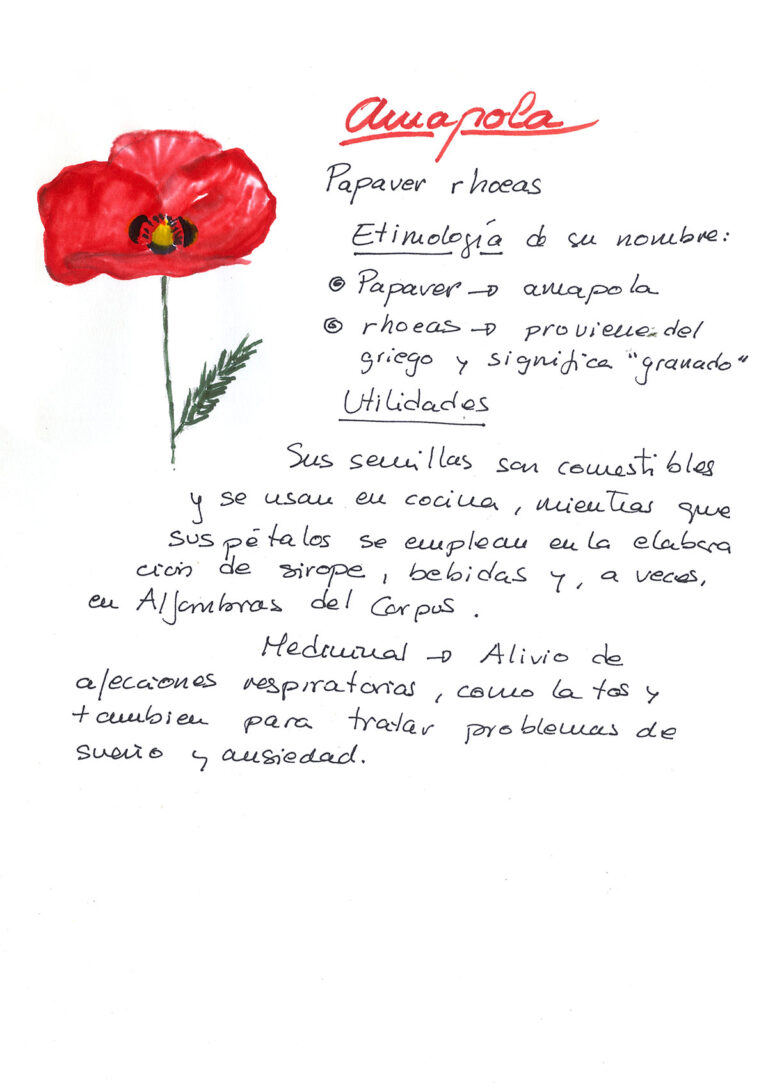 Amapola
Papaver rhoeas
Etimología de su nombre:
Papaver → amapola
rhoeas → proviene del
griego y significa "granado"
Utilidades
Sus semillas son comestibles
y se usan en cocina, mientras que
sus pétalos se emplean en la elabora
ción de sirope, bebidas y, a veces,
en Alfombras del Corpus.
Medicinal → Alivio de
afecciones respiratorias, como la tos y
tambien para tratar problemas de
sueño y ansiedad.